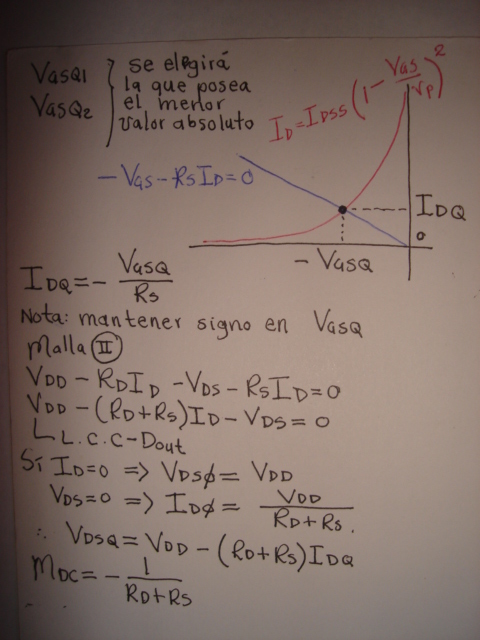 VGSQ1 } se elegirá
la que posea
VGSQ2 el menor
valor absoluto
ID = IDSS (1 - VGS/VP)²
- VGS - RS ID = 0
IDQ
0
- VGSQ
IDQ = - VGSQ/RS
Nota: mantener signo en VGSQ
Malla II
VDD - RD ID - VDS - RS ID = 0
VDD - (RD + RS) ID - VDS = 0
L.C.C-Dout
Si ID = 0 => VDSϕ = VDD
VDS = 0 => IDϕ = VDD/RD + RS.
∴ VDSQ = VDD - (RD + RS) IDQ
MDC = - 1/RD + RS